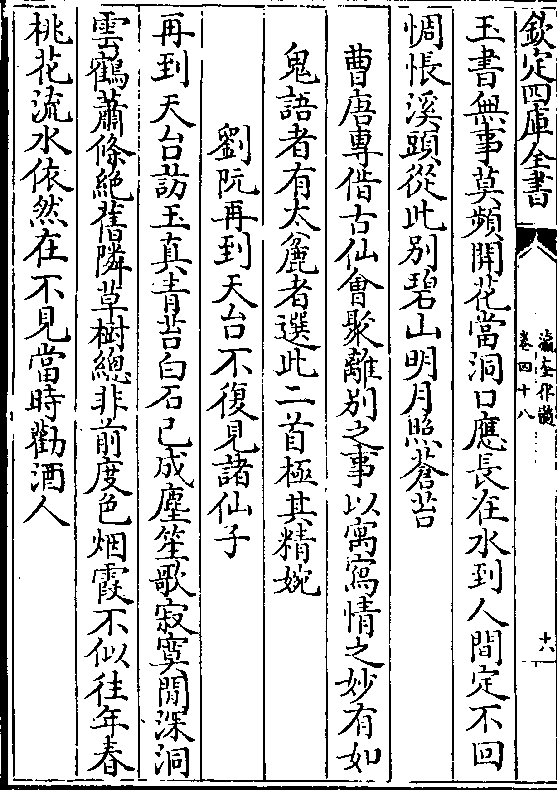 欽定四庫全書
瀛奎律髓
卷四十八
十六
玉書無事莫頻開花當洞口應長在水到人間定不回
惆悵溪頭從此別碧山明月照蒼苔
曹唐專借古仙會聚離別之事以寓寫情之妙有如
鬼語者有太麄者選此二首極其精婉
劉阮再到天台不復見諸仙子
再到天台訪玉真青苔白石已成塵笙歌寂寞閒深洞
雲鶴蕭條絕舊隣草樹總非前度色烟霞不似往年春
桃花流水依然在不見當時勸酒人